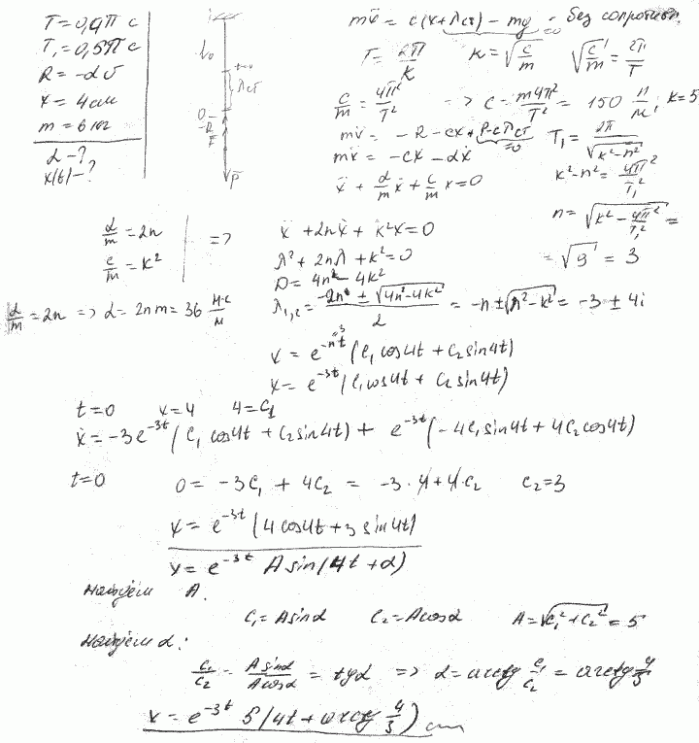 T = 0,4π с
T₁ = 0,5π с
R = -αv̄
x = 4 см
m = 6 кг
α - ?
x(t) - ?
l₀
λст
0
-R
F
p̄
mẍ = c(x+λст) - mg
=0
без сопротивл.
T = 2π/k   k = √(c/m)   √(c/m) = 2π/T
c/m = 4π²/T² => c = m4π²/T² = 150 н/м; k=5
mẍ = -R - cx + p - cλст
=0
T₁ = 2π/√(k²-n²)
mẍ = -cx - αẋ
k² - n² = 4π²/T₁²
ẍ + α/m ẋ + c/m x = 0
n = √(k² - 4π²/T₁²) =
= √9 = 3
α/m = 2n
c/m = k²
=>
ẍ + 2nẋ + k²x = 0
λ² + 2nλ + k² = 0
D = 4n² - 4k²
α/m = 2n => α = 2nm = 36 н·с/м
λ₁,₂ = (-2n ± √(4n²-4k²))/2 = -n ± √(n²-k²) = -3 ± 4i
x = e^(-nt) (C₁ cos4t + C₂ sin4t)
3
x = e^(-3t) (C₁ cos4t + C₂ sin4t)
t=0   x=4   4=C₁
ẋ = -3e^(-3t) (C₁ cos4t + C₂ sin4t) + e^(-3t) (-4C₁ sin4t + 4C₂ cos4t)
t=0   0 = -3C₁ + 4C₂ = -3·4 + 4·C₂   C₂=3
x = e^(-3t) (4 cos4t + 3 sin4t)
x = e^(-3t) A sin(4t + α)
Найдем A.
C₁ = A sinα   C₂ = A cosα   A = √(C₁² + C₂²) = 5
Найдем α:
C₁/C₂ = A sinα/A cosα = tgα => α = arctg C₁/C₂ = arctg 4/3
x = e^(-3t) 5 (4t + arctg 4/3) см